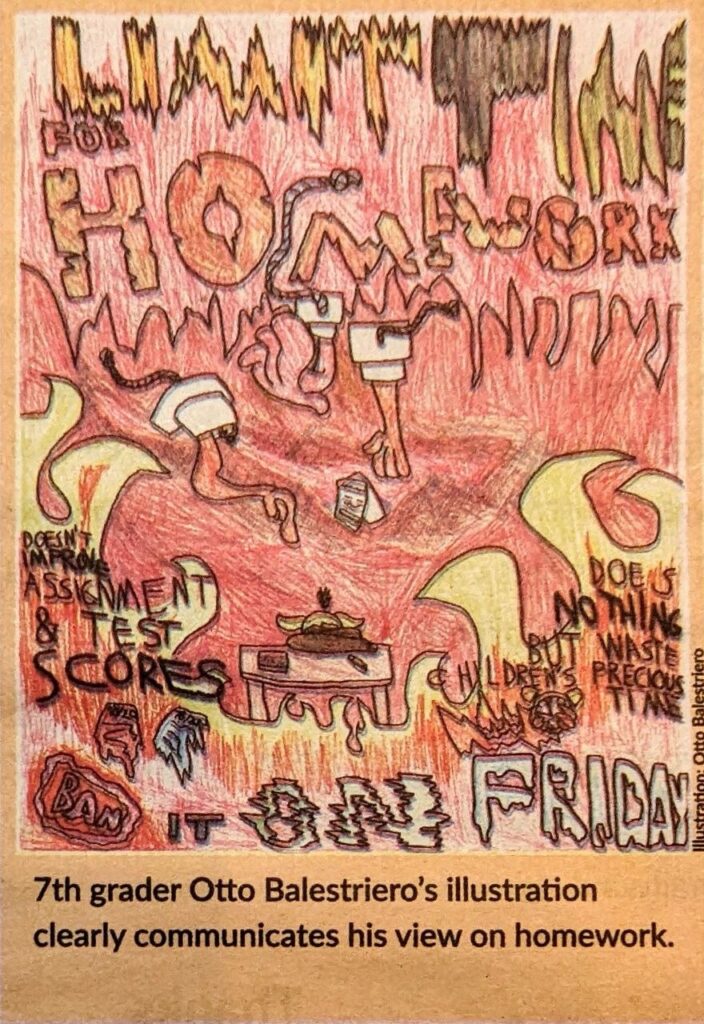 LIMIT TIME
FOR
HOMEWORK
DOESN'T
IMPROVE
ASSIGNMENT
& TEST
SCORES
DOES
NOTHING
BUT WASTE
CHILDREN'S PRECIOUS
TIME
BAN IT ON FRIDAY
Illustration: Otto Balestriero
7th grader Otto Balestriero's illustration
clearly communicates his view on homework.